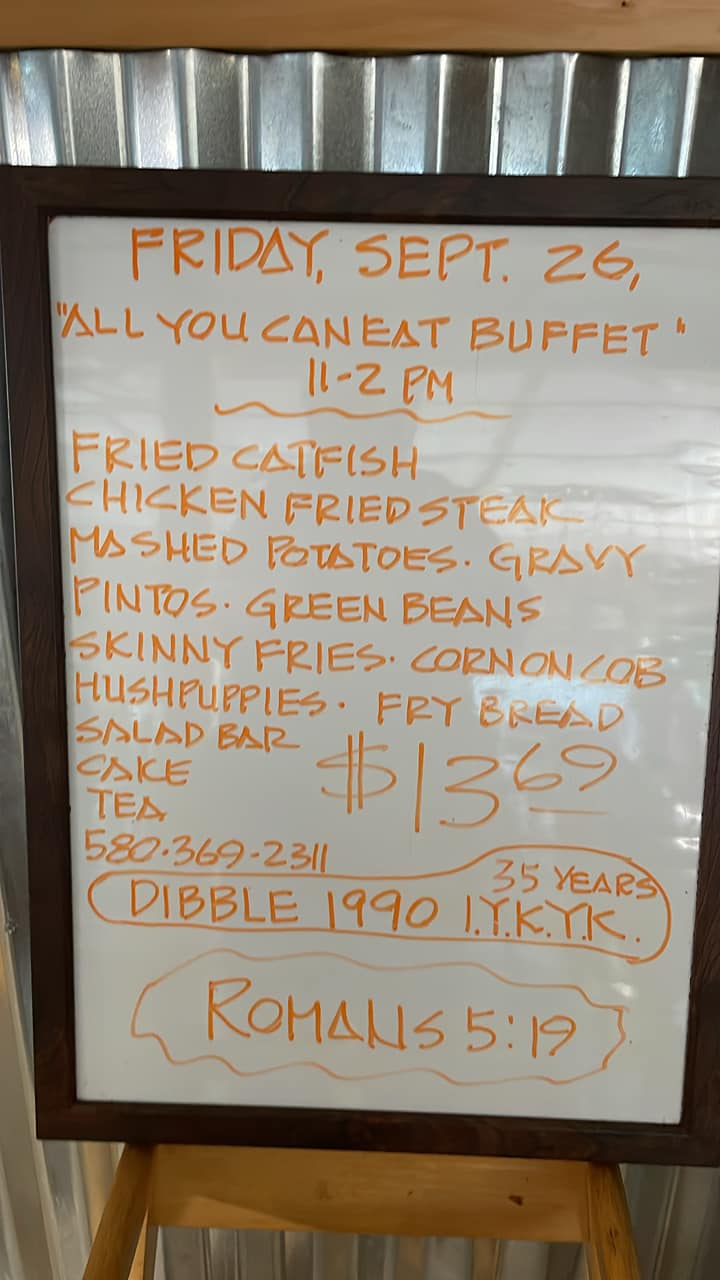 FRIDAY, SEPT. 26,
"ALL YOU CAN EAT BUFFET"
11-2 PM
FRIED CATFISH
CHICKEN FRIED STEAK
MASHED POTATOES. GRAVY
PINTOS. GREEN BEANS
SKINNY FRIES. CORN ON COB
HUSHPUPPIES. FRY BREAD
SALAD BAR
CAKE
TEA
$13 69
580.369-2311
35 YEARS
DIBBLE 1990 I.Y.K.Y.K.
ROMANS 5:19